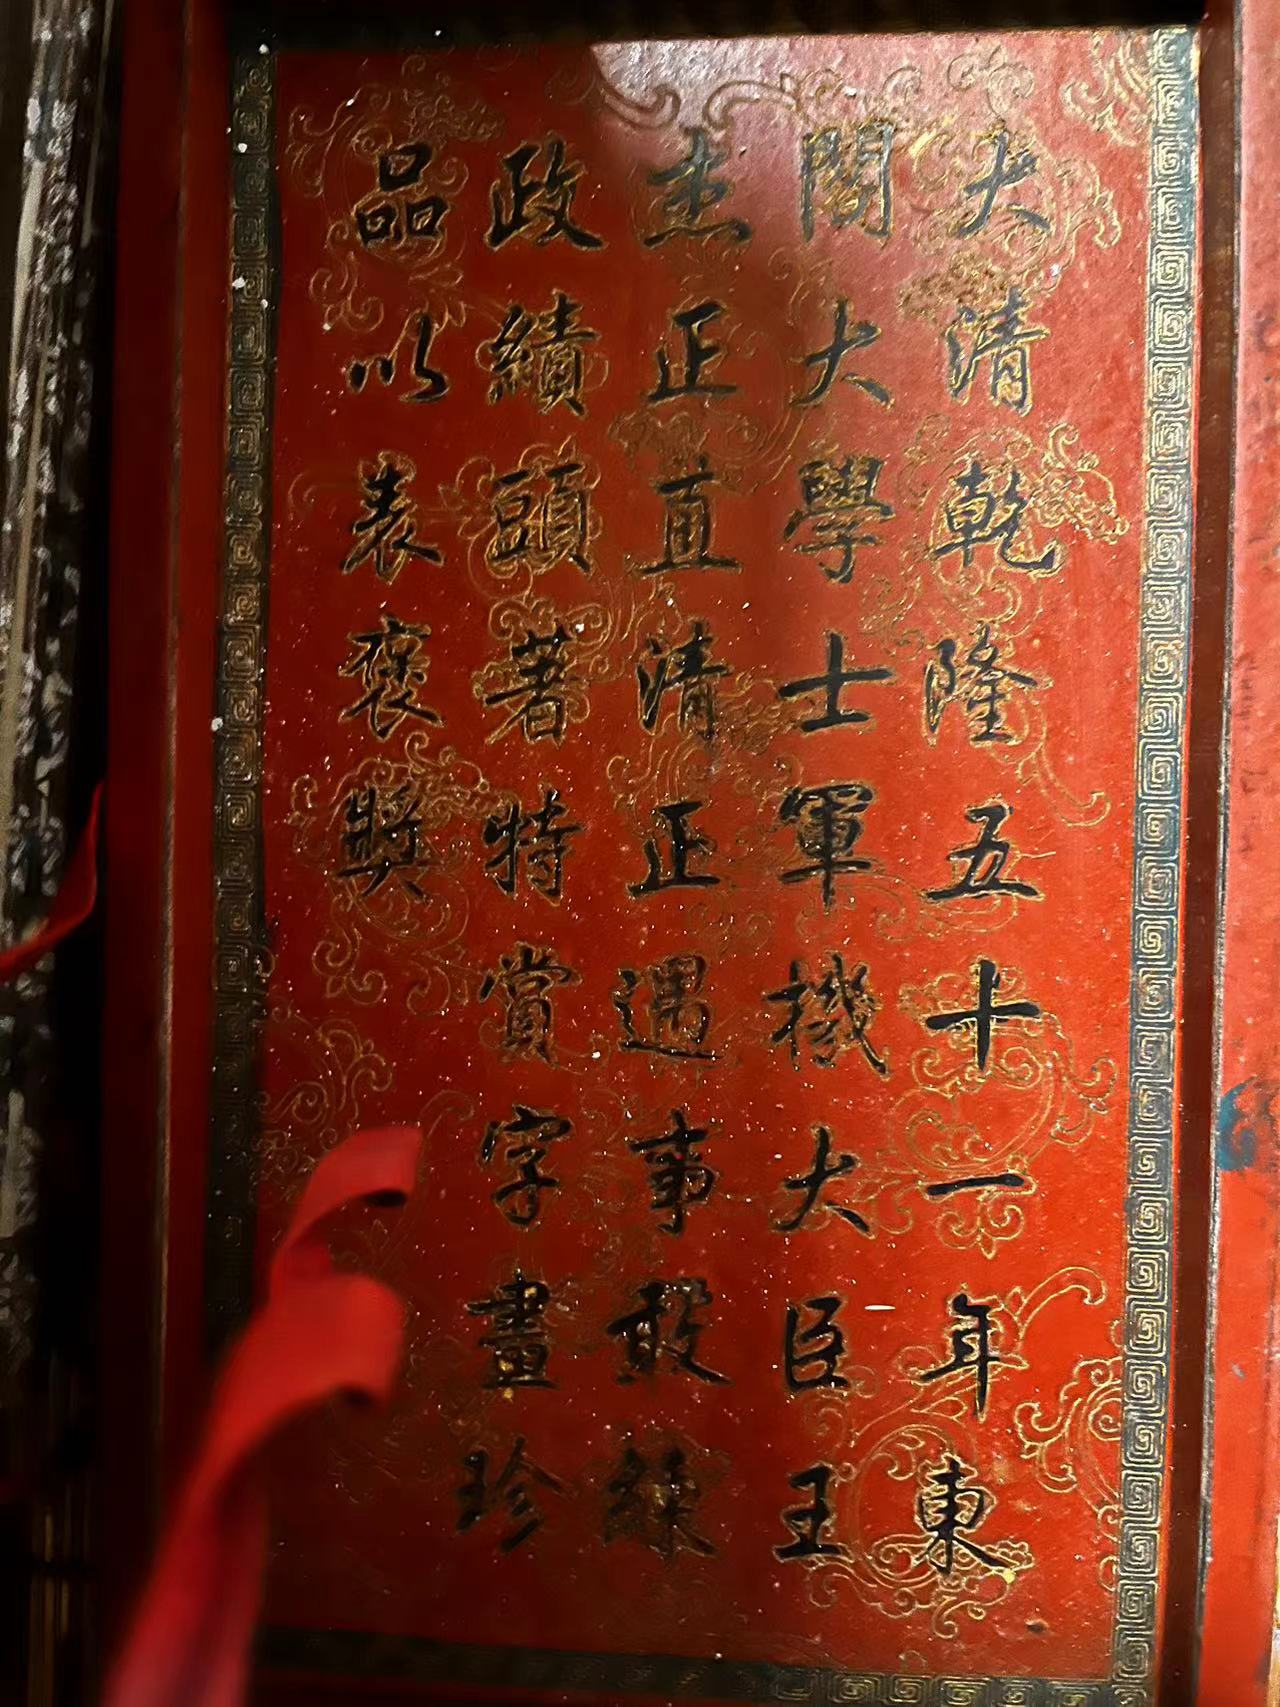 大清乾隆五十一年東
閣大學士軍機大臣王
杰正直清正遇事敢
政績頭著特賞字畫珍
品以表褒獎